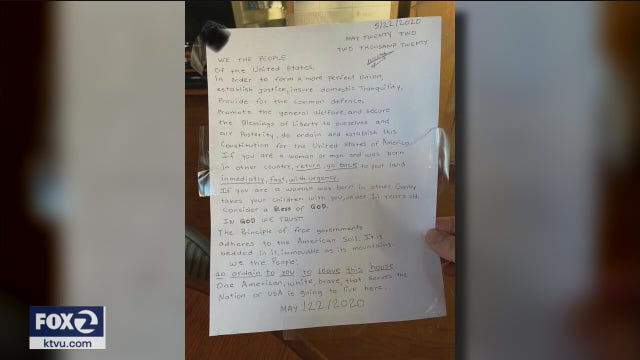 5/22/2020
MAY TWENTY TWO
TWO THOUSAND TWENTY
WE THE PEOPLE
Of the United States.
in order to form a more perfect Union,
establish justice, insure domestic Tranquility,
Provide for the common defence,
Promote the general Welfare, and secure
the Blessings of Liberty to ourselves and
our Posterity, do ordain and establish this
Constitution for the United States of America.
If you are a woman or man and was born
in other country, return, go back to your land
inmediatly, fast, with urgency.
If you are a woman was born in other Country
takes your children with you, under 11 years old.
Consider a Bless of GOD.
IN GOD WE TRUST.
The Principle of free governments
adheres to the American Soil. It is
bedded in it, inmovable as its mountains.
We the People:
do ordain to you to leave this house.
One American, white, brave, that serves the
Nation or USA is going to live here.
MAY /22/2020
FOX 2
ktvu.com